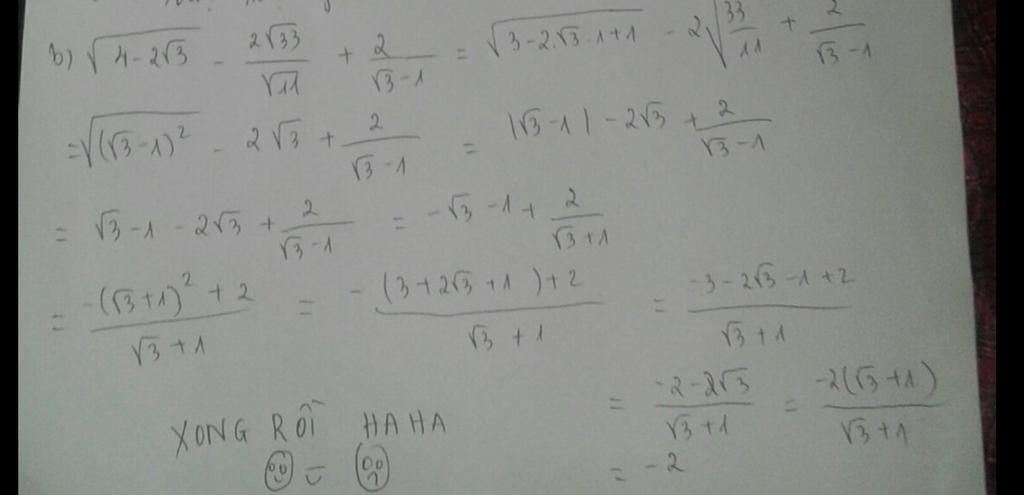 b) √(4-2√3) - 2√33/√11 + 2/(√3-1) = √(3-2.√3.1+1) - 2√(33/11) + 2/(√3-1)
= √((√3-1)²) - 2√3 + 2/(√3-1) = |√3-1| - 2√3 + 2/(√3-1)
= √3-1 - 2√3 + 2/(√3-1) = -√3-1 + 2/(√3+1)
= (-(√3+1)²+2)/(√3+1) = (-(3+2√3+1)+2)/(√3+1) = (-3-2√3-1+2)/(√3+1)
= (-2-2√3)/(√3+1) = -2(√3+1)/(√3+1)
XONG RỒI HAHA
= -2